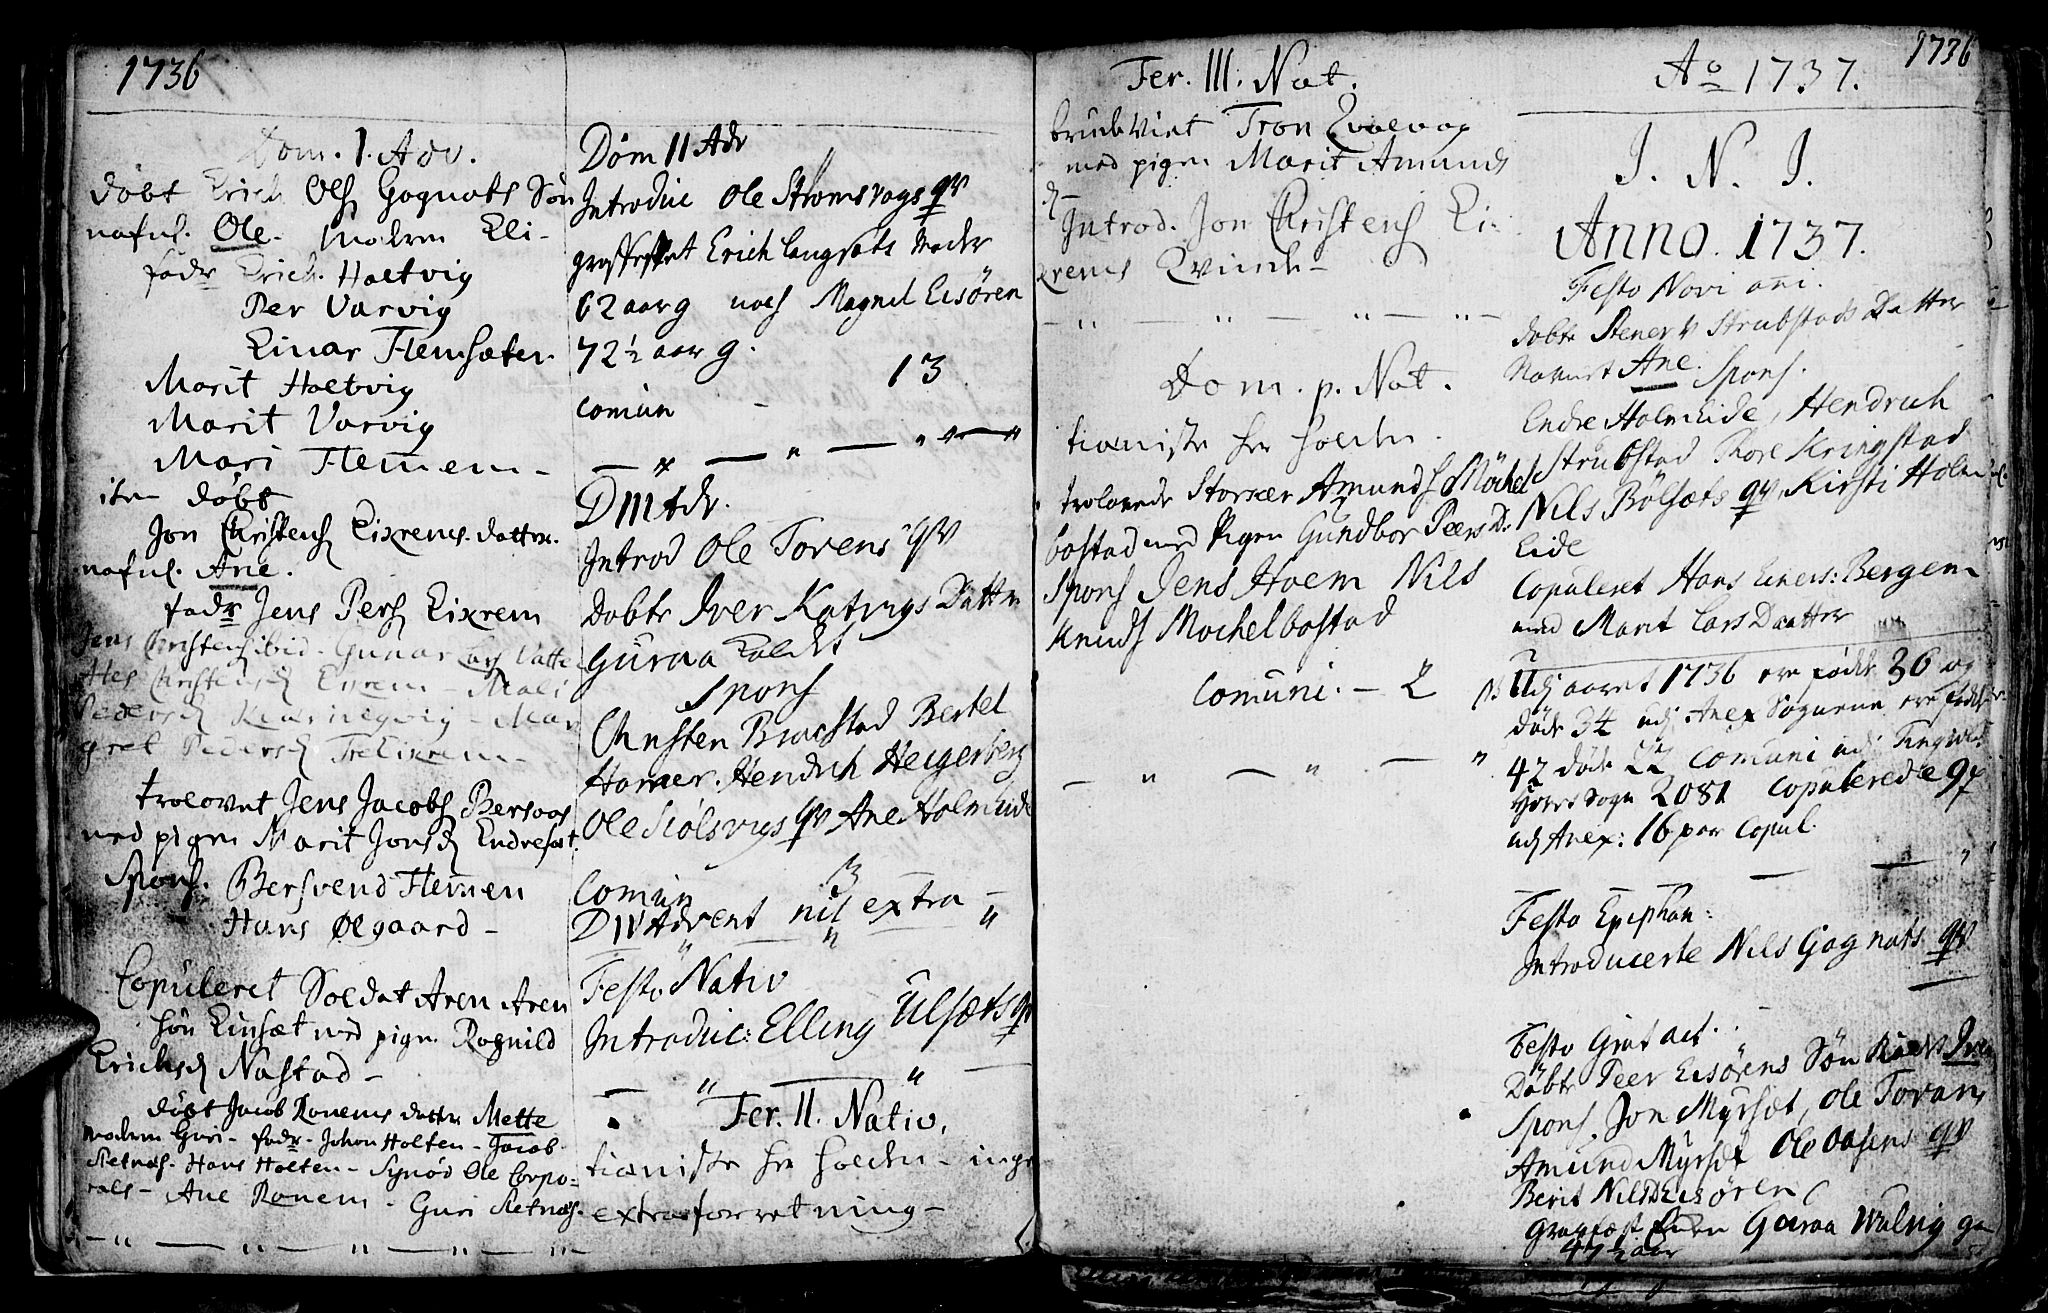 1736
Dom. 1. Adv.
døbt Erich Ols Gagnats Søn
nafnl. Ole. Modren Eli-
fadr Erich Holtvig
Per Varvig
Einar Flemsæter
Marit Holtvig
Marit Varvig
Mari Flemem-
item døbt
Jon Christens Eixrems datter.
nafnl. Ane.
fadr Jens Pers Eixrem
Jens Christens ibid- Gunar Lars Vatte
Christensd Eixrem - Mali
Pedersd - Mar
gret Pedersd
trolovet Jens Jacobs Bersaas
med pigen Marit Jonsd Endresæt.
Spons. Bersvend Flemen
Hans Ølgaard-
Copuleret Soldat Aren Aren
søn Einsæt med pigen Rognild
Erichsd Nastad-
døbt Jacob Ronems datter Mette
modren Guri- fadr- Johan Holten- Jacob
Retnæs. Hans Holten- Synød Ole Corpo=
rals- Ane Ronem- Guri Retnæs.
Dom II Adv
Introduc Ole Strømsvogs qv
græsfestet Erich Langsæts Moder
62 aar g noch Magnil Eisøren
72½ aar g.
comun - 13
D III Adv.
Introd Ole Torens qv
Døbte Iver Katvigs Datter
Guraa Kaldet
Spons
Christen Bracstad Bertel
Hamer. Hendrich Heigerberg
Ole Siølsvigs qv Ane Holmeide
Comun 13
D IV Advent nil extra
Festo Nativ
Introduc: Elling Ulsæts qv
Fer. II. Nativ.
tienniste her holden - inge
extraforretning-
Fer. III. Nat.
brudeviet Tron Qvalvog
med pigen Marit Amunds
d-
Introd. Jon Christens Ei-
xrems Qvinde-
Dom. p. Nat.
tienniste her holden.
trolovede Storker Amunds Mochel
bostad med Pigen Gundbor Peers D.
Spons Jens Hoem Nils
Knuds Mochelbostad
Comuni. - 2
1736
Ao 1737.
I. N. I.
Anno. 1737.
Festo Novi ani.
døbte Stener Strubstads Datter
Navnet Ane. Spons.
Endre Holmeide, Hendrich
Strubstad Tore Kringstad
Nils Bölsæts qv, Kirsti Holm
Eide
Copuleret Hans Einers: Bergem
med Marit Lars Daatter
NB Udj aaret 1736 ere fødde 36 og
døde 34 udj Anex Sognene ere fødde
42 døde 22 Comuni udj
Sogn 2081 Copulerede 9 p
udj Anex: 16 par Copul.
Festo Epiphan:
Introducerte Nils Gagnats qv
Festo Grat act.
Døbte Peer Eisörens Søn Iver
Spons. Jon Myrsæt, Ole Toran
Amund Myrsæt Ole Oasens qv
Berit NilsD Eisören
Græsfæst Guraa Walvig ga
47½ aar